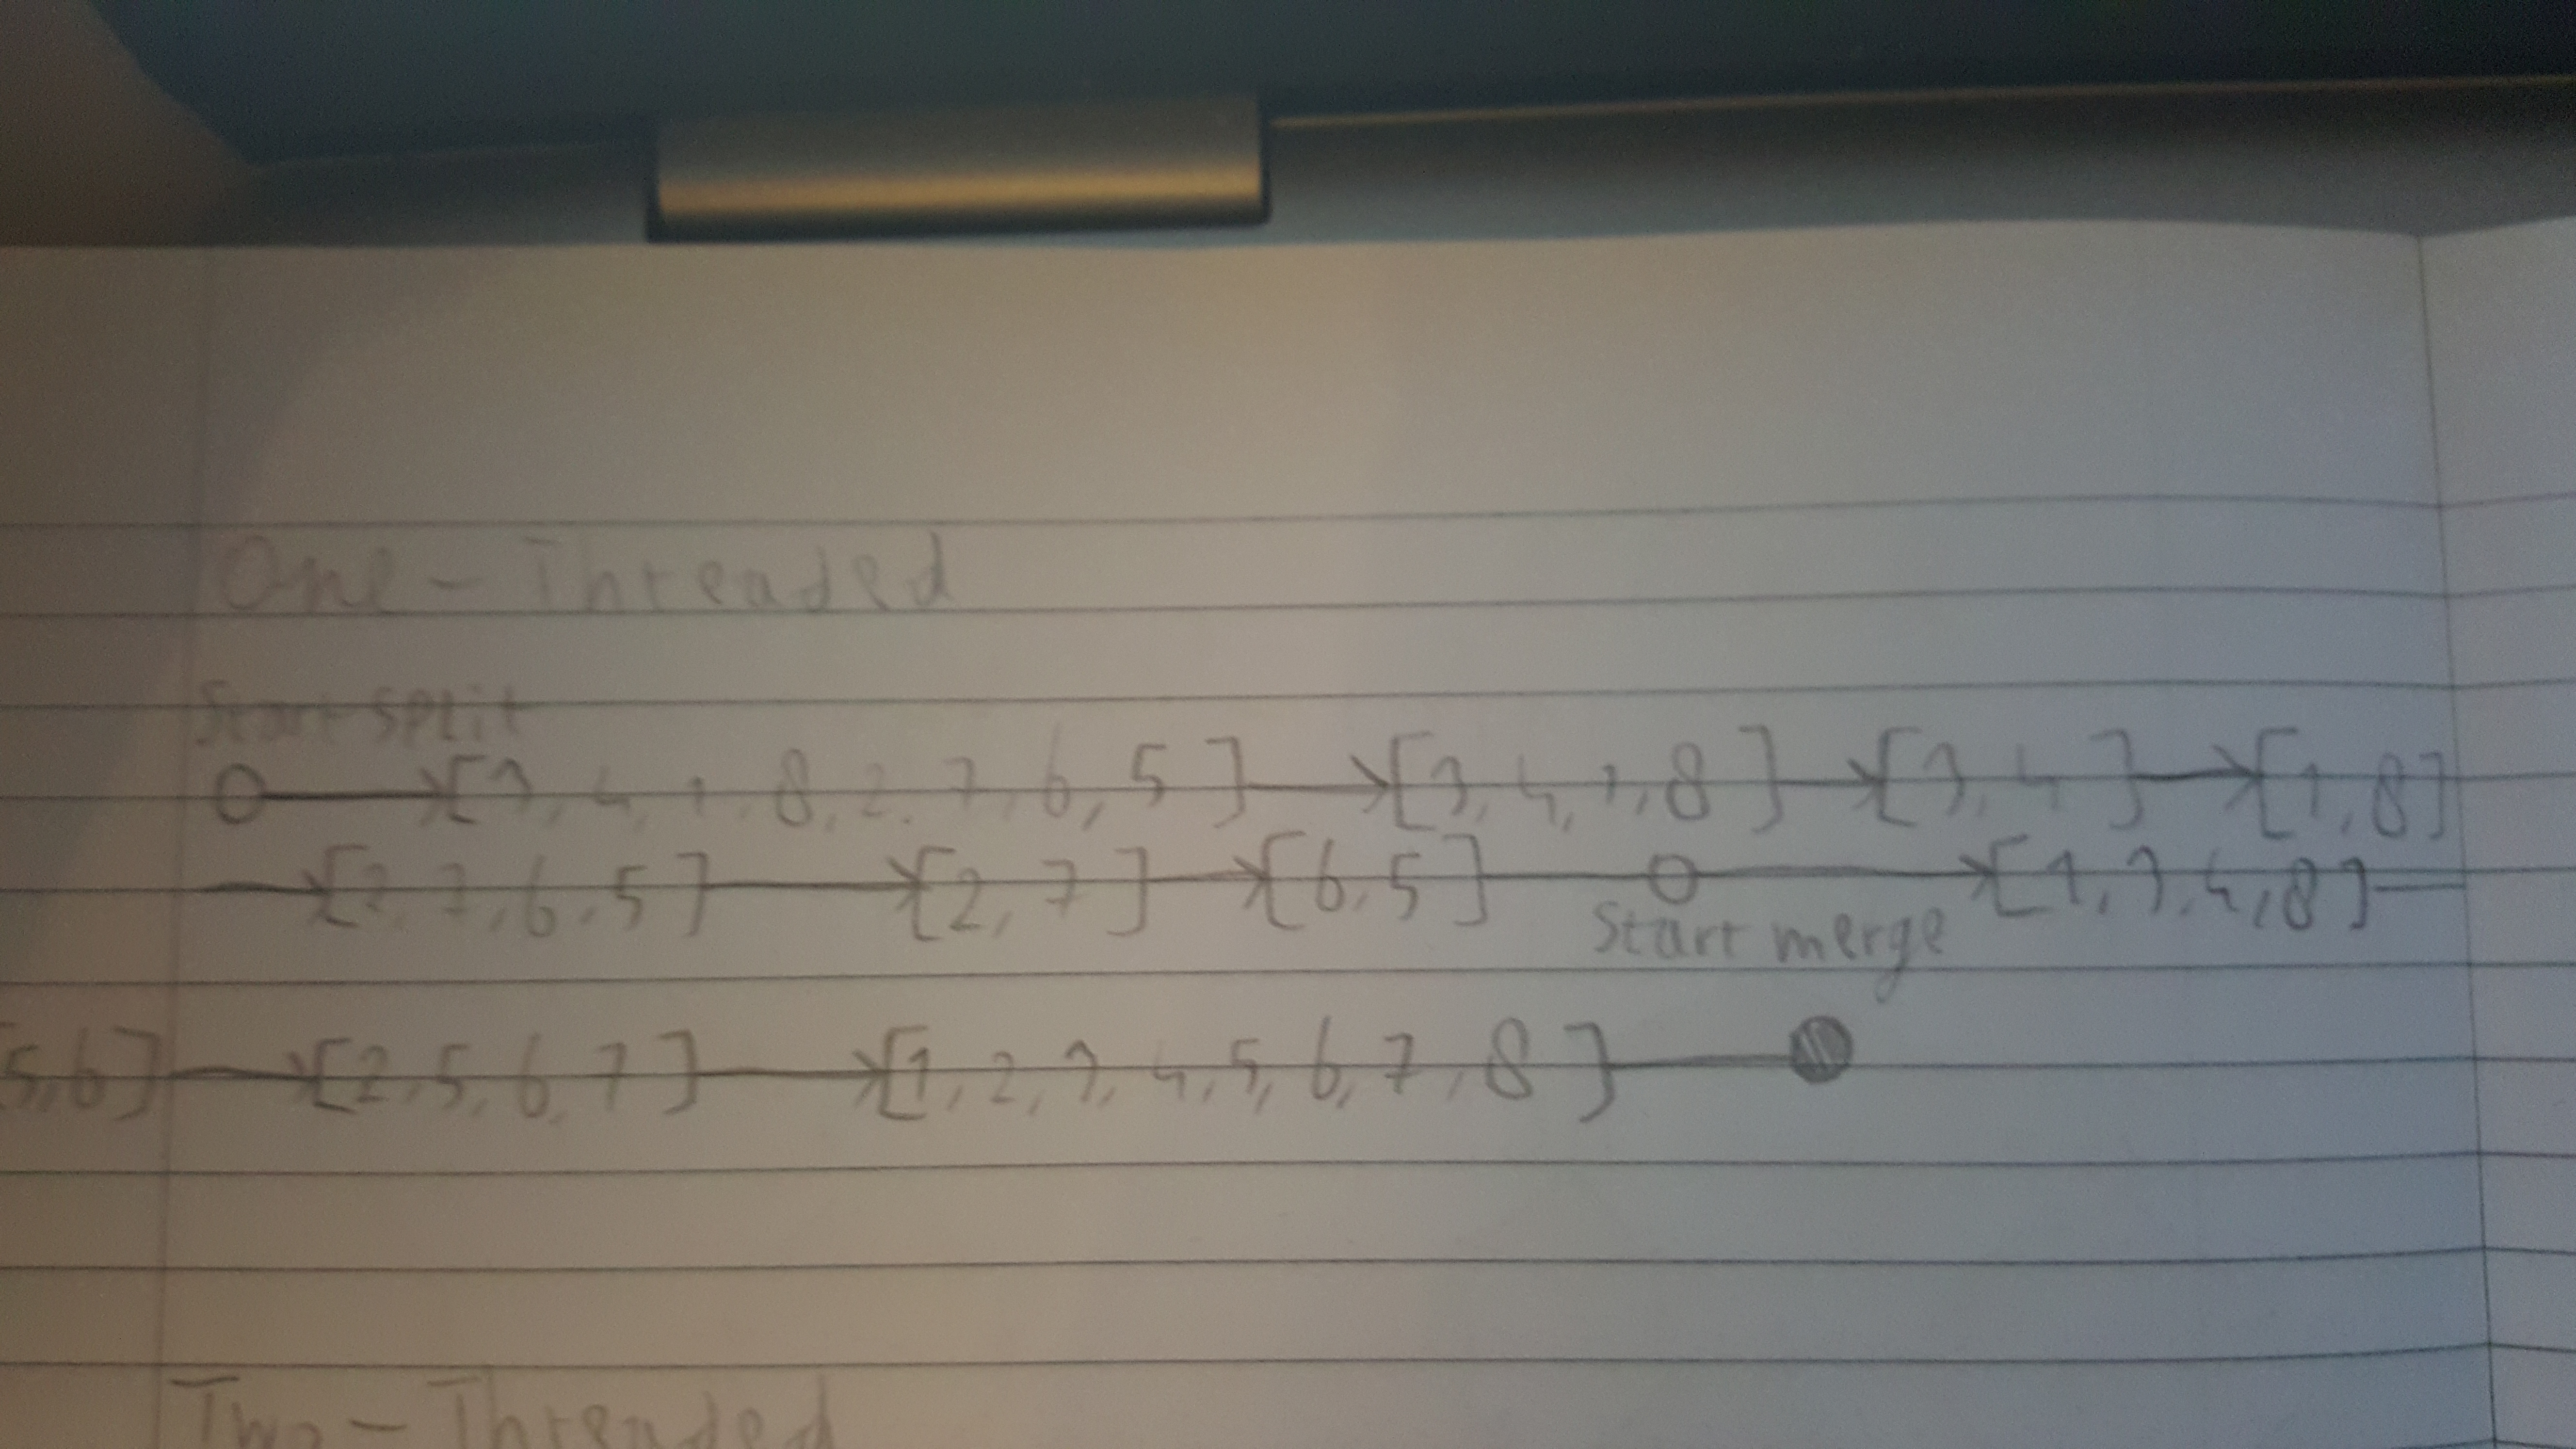 One-Threaded
Start split
O→[3,4,1,8,2,7,6,5]→[3,4,1,8]→[3,4]→[1,8]
→[2,7,6,5]→[2,7]→[6,5]—O→[1,3,4,8]—
Start merge
5,6]→[2,5,6,7]→[1,2,3,4,5,6,7,8]—●
Two-Threaded